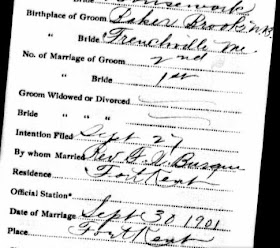 Housework
Birthplace of Groom Baker Brook N.B.
" Bride Frenchville Me.
No. of Marriage of Groom 2nd
" Bride 1st
Groom Widowed or Divorced
" Bride " "
Intention Filed Sept 27
By whom Married Rev
Residence Fort Kent
Official Station*
Date of Marriage Sept 30 1901
Place Fort Kent